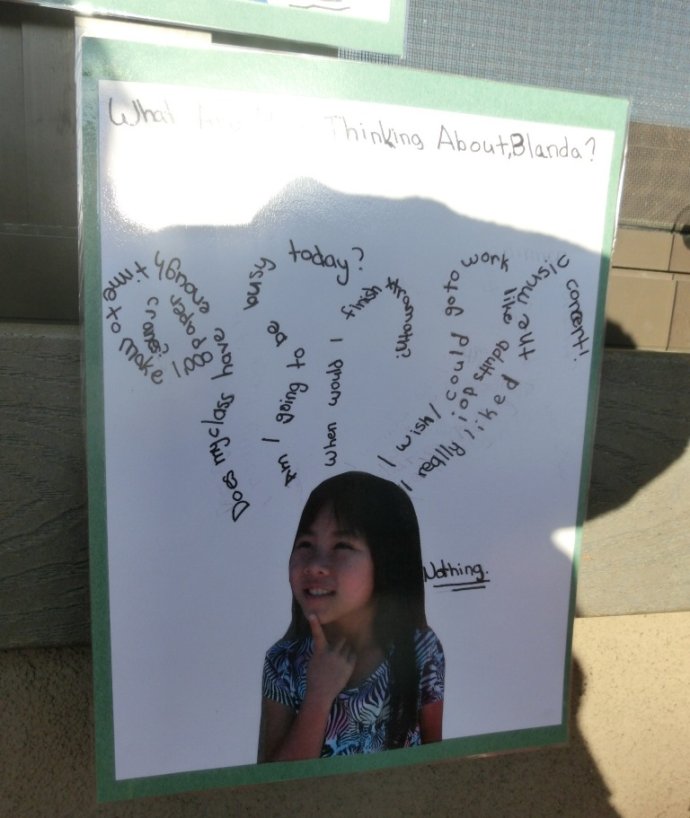 What Thinking About, Blanda?
Does my class have enough time to make 1,000 paper cranes?
Am I going to be busy today?
When would I finish
I wish I could go to work like adults do!
I really liked the music concert!
Nothing.